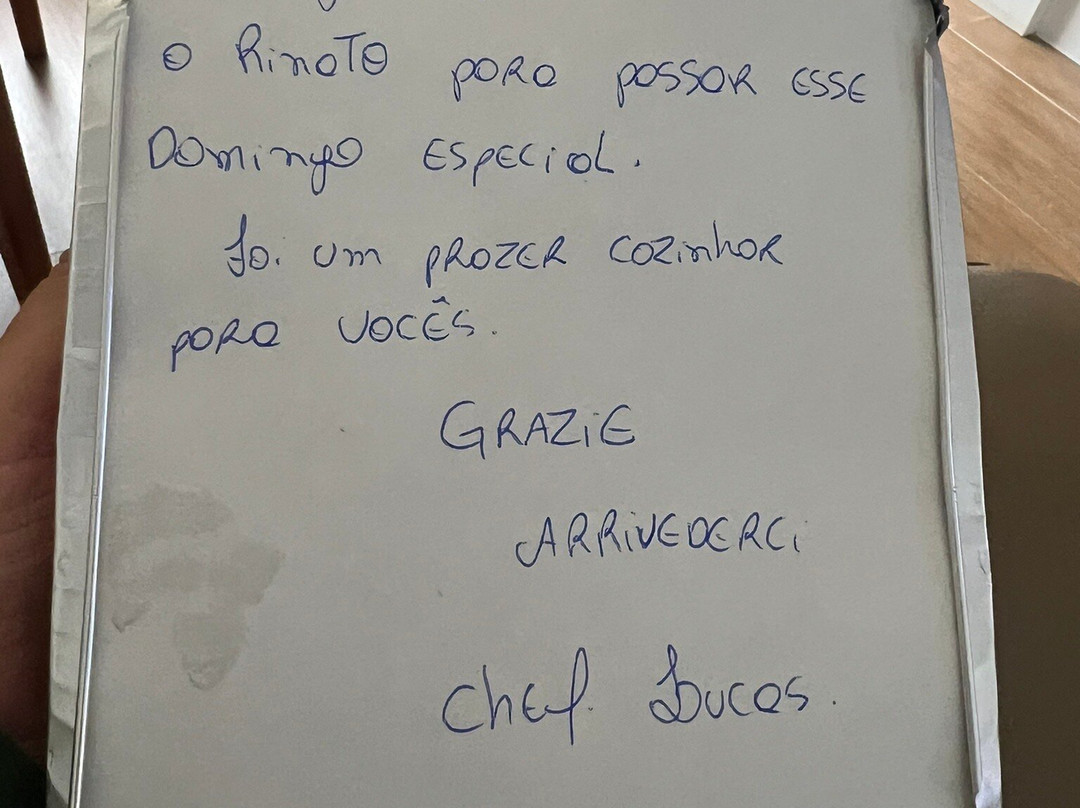 o Rinoto para passar esse
Domingo especial.
foi um prazer cozinhar
para vocês.
GRAZiE
ARRiVEDERCi
Chef. Lucas.